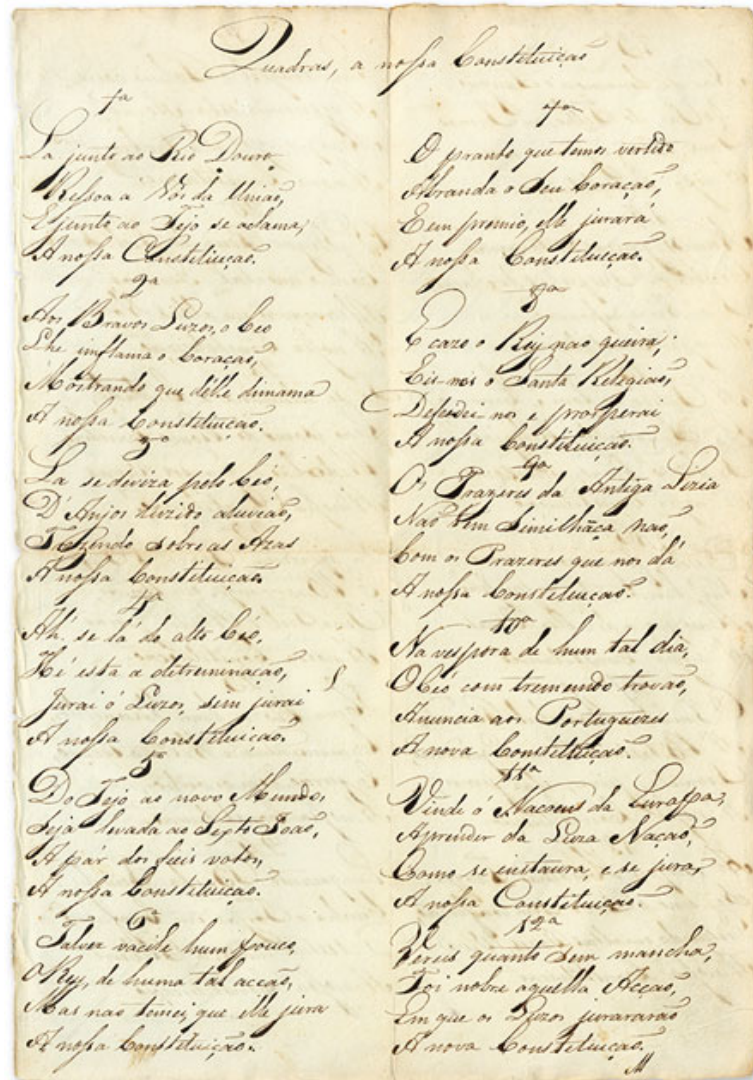 Quadras, a nossa Constituição
1ª
La junto ao Rio Douro
Ressoa a Vós da União,
E junto ao Tejo se aclama,
A nossa Constituição.
2ª
Aos Bravos Luzos, o Ceo
Lhe imflama o Coração,
Mostrando que délle dimama
A nossa Constituição.
3ª
La se deviza pelo Céo,
D'Anjos luzido aluvião,
Trazendo sobre as Azas
A nossa Constituição
4ª
Ah! se lá do alto Céo,
Hé esta a detreminação,
Jurai ó Luzos, sem jurai
A nossa Constituição.
5ª
Do Tejo ao novo Mundo,
Seja levada ao Sexto João,
A pár dos fieis votos,
A nossa Constituição.
6ª
Talvez vacile hum pouco,
O Rey, de huma tal acção,
Mas nao temei, que elle jura
A nossa Constituição.
7ª
O pranto que temos vertido
Abranda o Seu Coração,
E em premio, elle jurará
A nossa Constituição.
8ª
E cazo o Rey nao queira,
Eis-nos o Santa Religião,
Defendei-nos e prosperai
A nossa Constituição.
9ª
Os Prazeres da Antiga Lizia
Não tem Similhãça não,
Com os Prazeres que nos dá
A nossa Constituição.
10ª
Na vespora de hum tal dia,
O Céo com tremendo trovão,
Anuncia aos Portuguezes
A nova Constituição.
11ª
Vinde ó Nacoens da Europa,
Aprender da Luza Nação,
Como se instaura, e se jura,
A nossa Constituição.
12ª
Vereis quanto Sem mancha,
Foi nobre aquella Acção,
Em que os Luzos jurararão
A nova Constituição.